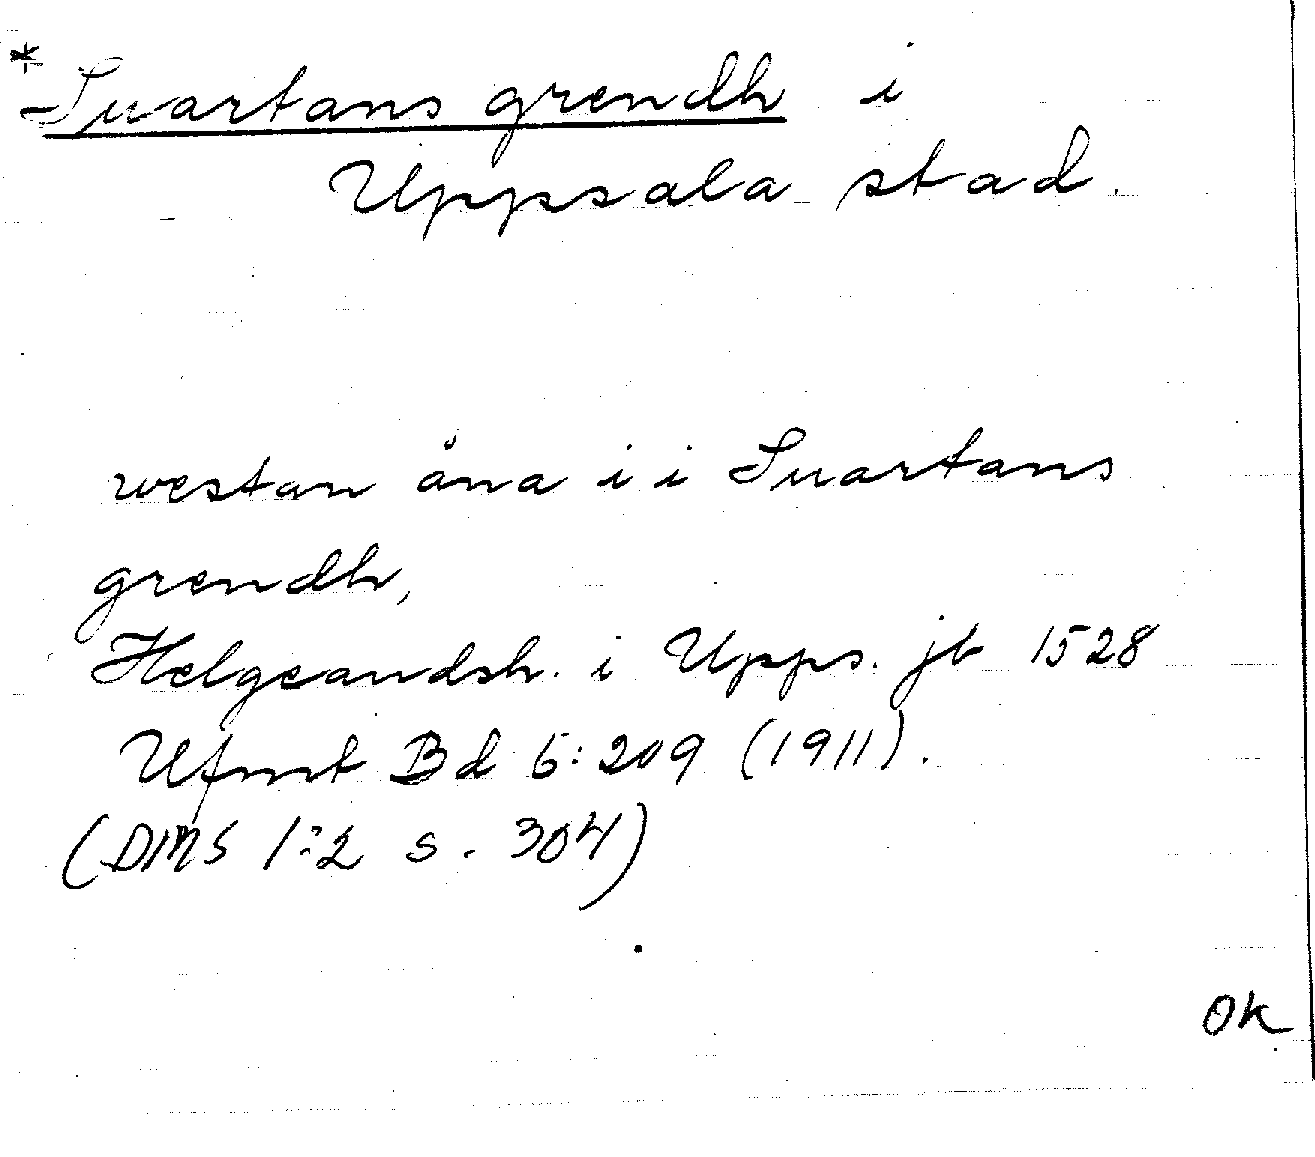 * Suartans grendh i
Uppsala stad
westan åna i i Suartans
grendh,
Helgeandsh. i Upps. jb 1528
Ufmt Bd 6:209 (1911).
(DMS 1:2 s. 304)
Ok